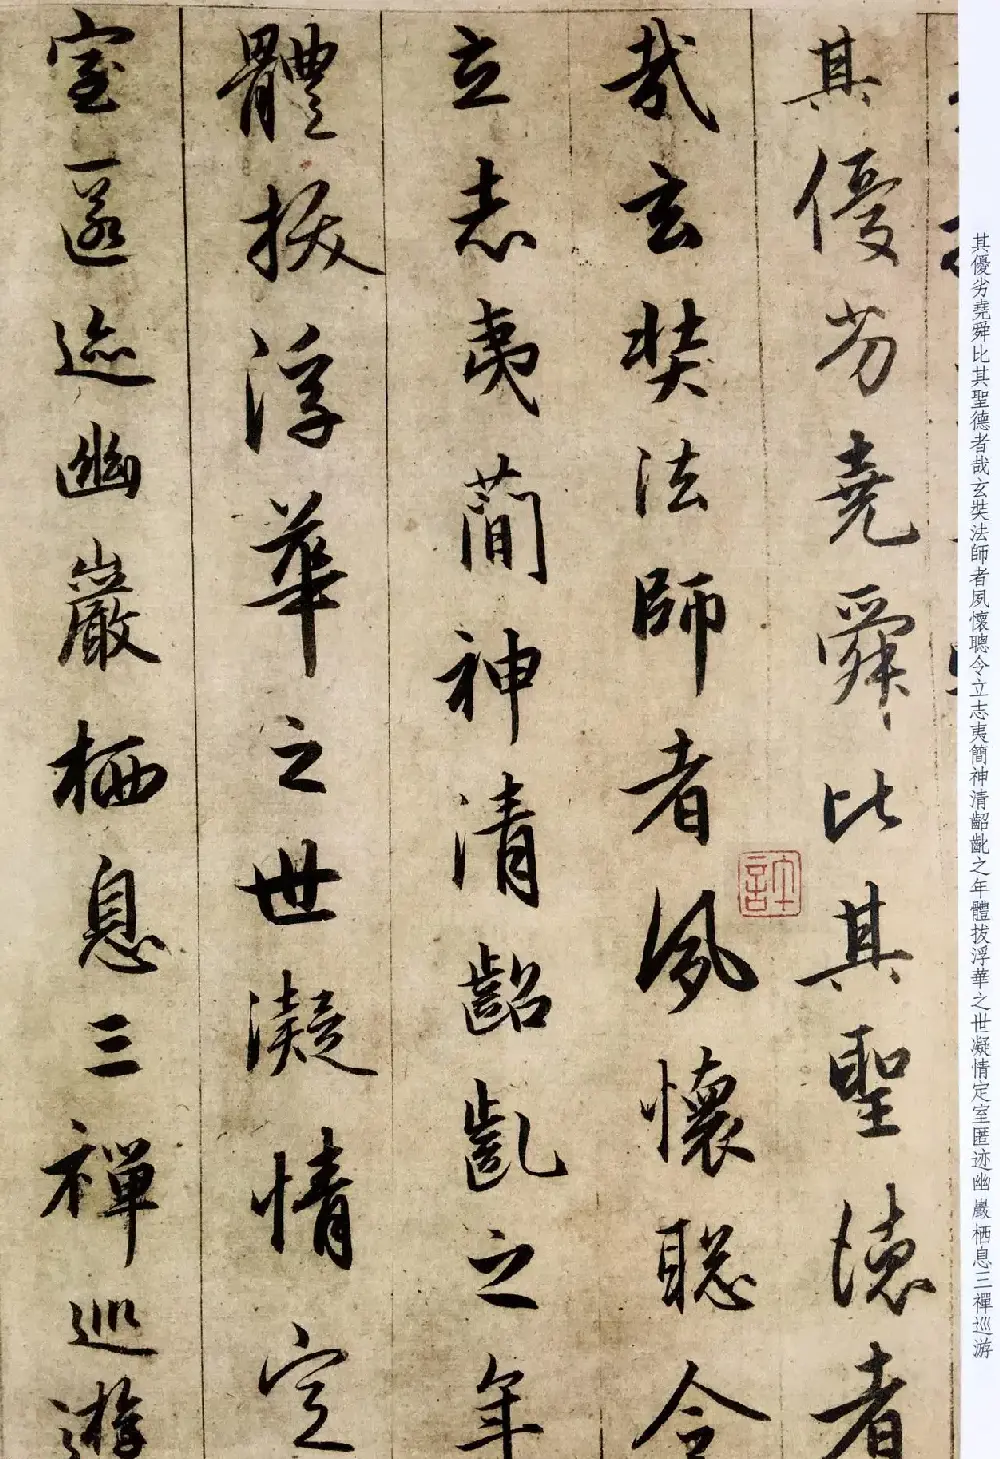 其優劣堯舜比其聖德者
哉玄奘法師者夙懷聰令
立志夷簡神清齠齔之年
體拔浮華之世凝情定
室匿迹幽巖栖息三禪巡遊
其優劣堯舜比其聖德者哉玄奘法師者夙懷聰令立志夷簡神清齠齔之年體拔浮華之世凝情定室匿迹幽巖栖息三禪巡游